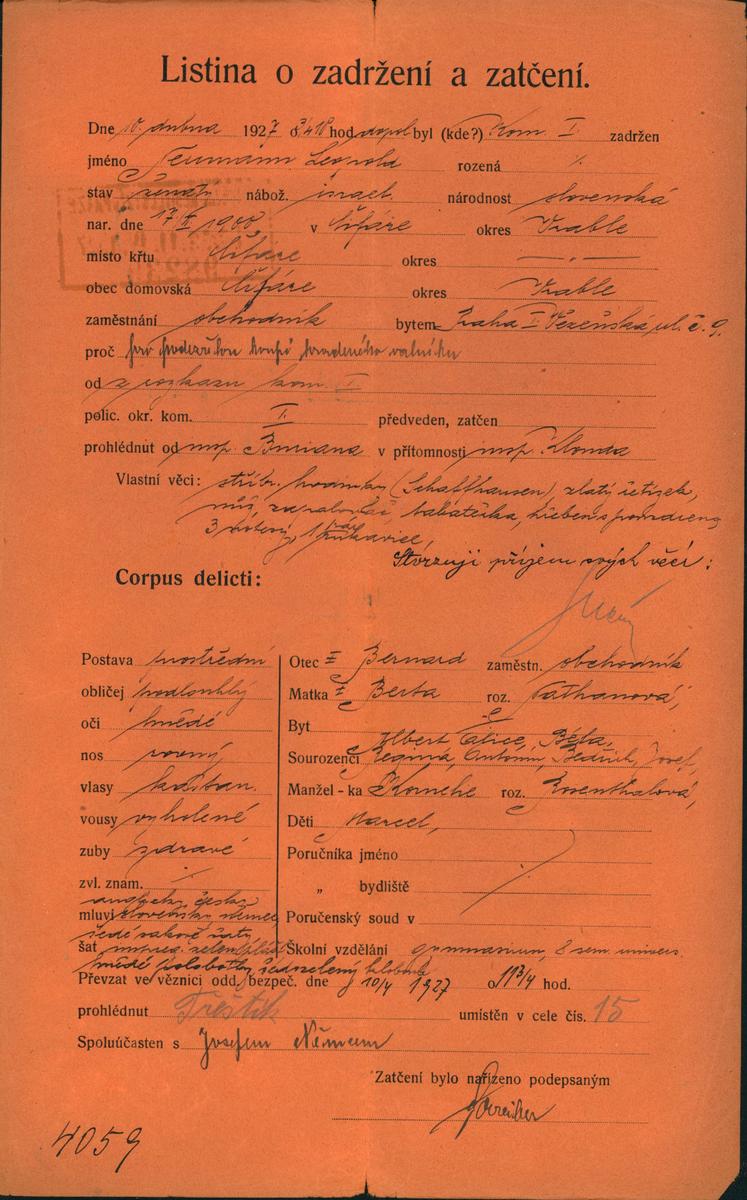 Listina o zadržení a zatčení.
Dne 10. dubna 1927 o 3/4 10 hod dopol byl (kde?) Kom. I. zadržen
jméno Neumann Leopold rozená %
stav ženatý nábož. israel. národnost slovenská
nar. dne 17/ 1900, v Čifáre okres Vráble
místo křtu Čifáre okres — " —
obec domovská Čifáre okres Vráble
zaměstnání obchodník bytem Praha I Vězeňská ul. č. 9.
proč pro podezření koupě kradeného
od z rozkazu kom. I
polic. okr. kom. I. předveden, zatčen
prohlédnut od insp. Buriana v přítomnosti insp. Klouda
Vlastní věci: stříbr. hodinky (Schaffhausen), zlatý řetízek,
nůž, zapalovač, tabatěrka, hřeben s pouzdrem,
3 1 pár rukavice,
Stvrzuji příjem svých věcí:
Corpus delicti:
Postava prostřední
obličej podlouhlý
oči hnědé
nos rovný
vlasy kaštan.
vousy vyholené
zuby zdravé
zvl. znam.
mluví slovensky, němec
česky
šat
šedé sakové šaty
hnědé polobotky, šedozelený klobouk
Otec Bernard zaměstn. obchodník
Matka Berta roz. Nathanová,
Byt
Albert, Alice, Běla,
Sourozenci Regina, Antonín, Bedřich, Josef,
Manžel-ka Kornelie roz. Rosenthalová,
Děti Marcel,
Poručníka jméno
„ bydliště
Poručenský soud v
Školní vzdělání gymnasium, 8 sem. univers.
Převzat ve věznici odd. bezpeč. dne 10/4 1927 o 11 3/4 hod.
prohlédnut Třeštík umístěn v cele čís. 15
Spoluúčasten s Josefem Němcem
Zatčení bylo nařízeno podepsaným
4059